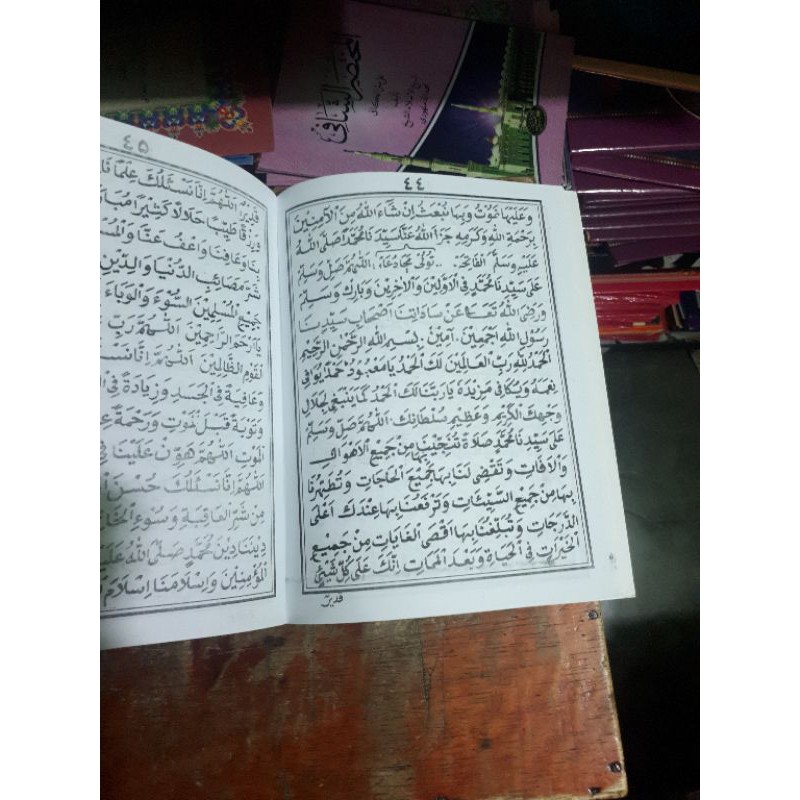 ٤٤
وَعَلَيْهَا نَمُوْتُ وَبِهَا نُبْعَثُ اِنْ شَاءَ اللّٰهُ مِنَ الْاٰمِنِيْنَ
بِرَحْمَةِ اللّٰهِ وَكَرَمِهِ جَزَا اللّٰهُ عَنَّا سَيِّدَنَا مُحَمَّدًا صَلَّى اللّٰهُ
عَلَيْهِ وَسَلَّمَ اَلْفَاتِحَةْ
اَللّٰهُمَّ صَلِّ وَسَلِّمْ
عَلٰى سَيِّدِنَا مُحَمَّدٍ فِى الْاَوَّلِيْنَ وَالْاٰخِرِيْنَ وَبَارِكْ وَسَلِّمْ
وَرَضِىَ اللّٰهُ تَعَالٰى عَنْ سَادَاتِنَا اَصْحَابِ سَيِّدِنَا
رَسُوْلِ اللّٰهِ اَجْمَعِيْنَ. اٰمِيْنَ. بِسْمِ اللّٰهِ الرَّحْمٰنِ الرَّحِيْمِ
اَلْحَمْدُ لِلّٰهِ رَبِّ الْعَالَمِيْنَ لَكَ الْحَمْدُ يَا مَعْبُوْدُ حَمْدًا يُوَافِى
نِعَمَهُ وَيُكَافِى مَزِيْدَهُ يَا رَبَّنَا لَكَ الْحَمْدُ كَمَا يَنْبَغِى لِجَلَالِ
وَجْهِكَ الْكَرِيْمِ وَعَظِيْمِ سُلْطَانِكَ. اَللّٰهُمَّ صَلِّ وَسَلِّمْ
عَلٰى سَيِّدِنَا مُحَمَّدٍ صَلَاةً تُنْجِيْنَا بِهَا مِنْ جَمِيْعِ الْاَهْوَالِ
وَالْاٰفَاتِ وَتَقْضِى لَنَا بِهَا جَمِيْعَ الْحَاجَاتِ وَتُطَهِّرُنَا
بِهَا مِنْ جَمِيْعِ السَّيِّئَاتِ وَتَرْفَعُنَا بِهَا عِنْدَكَ اَعْلَى
الدَّرَجَاتِ وَتُبَلِّغُنَا بِهَا اَقْصَى الْغَايَاتِ مِنْ جَمِيْعِ
الْخَيْرَاتِ فِى الْحَيَاةِ وَبَعْدَ الْمَمَاتِ اِنَّكَ عَلٰى كُلِّ شَيْئٍ
قَدِيْرٌ
٤٥
قَدِيْرٌ اَللّٰهُمَّ اِنَّا نَسْئَلُكَ عِلْمًا
طَيِّبًا حَلَالًا كَثِيْرًا
وَعَافِنَا وَاعْفُ عَنَّا
شَرَّ مَصَائِبِ الدُّنْيَا وَالدِّيْنِ
جَمِيْعِ الْمُسْلِمِيْنَ السُّوْءَ وَالْوَبَاءَ
يَا اَرْحَمَ الرَّاحِمِيْنَ اَللّٰهُمَّ رَبَّ
لِقَوْمِ الظَّالِمِيْنَ اَللّٰهُمَّ اِنَّا
وَعَافِيَةً فِى الْجَسَدِ وَزِيَادَةً فِى
وَتَوْبَةً قَبْلَ الْمَوْتِ وَرَحْمَةً
الْمَوْتِ اَللّٰهُمَّ هَوِّنْ عَلَيْنَا فِى
اَللّٰهُمَّ اِنَّا نَسْئَلُكَ حُسْنَ
مِنْ شَرِّ الْعَاقِبَةِ وَسُوْءِ
دِيْنَنَا دِيْنَ مُحَمَّدٍ صَلَّى اللّٰهُ
الْمُؤْمِنِيْنَ وَاِسْلَامَنَا اِسْلَامَ